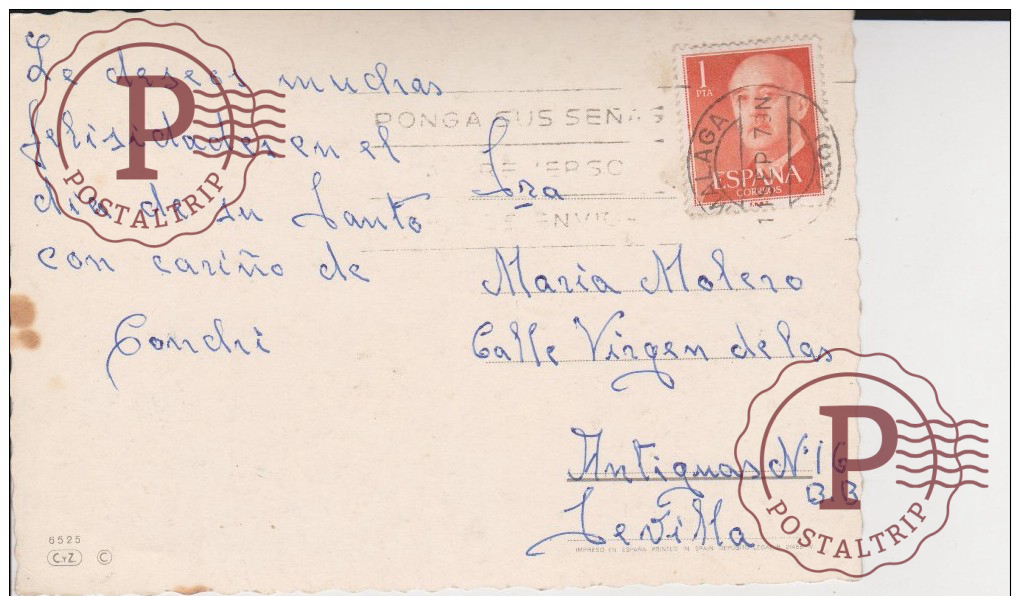 Le deseos muchas
felisidades en el
dia de su Santo
con cariño de
Conchi
1
PTA
ESPAÑA
CORREOS
MALAGA
PONGA SUS SEÑAS
REVERSO
ENVIO
Sra
Maria Molero
Calle Virgen de las
Antiguas Nº 16
B.B
Sevilla
6525
CyZ ©
IMPRESO EN ESPAÑA PRINTED IN SPAIN DEPOSITO LEGAL
P
POSTALTRIP
P
POSTALTRIP